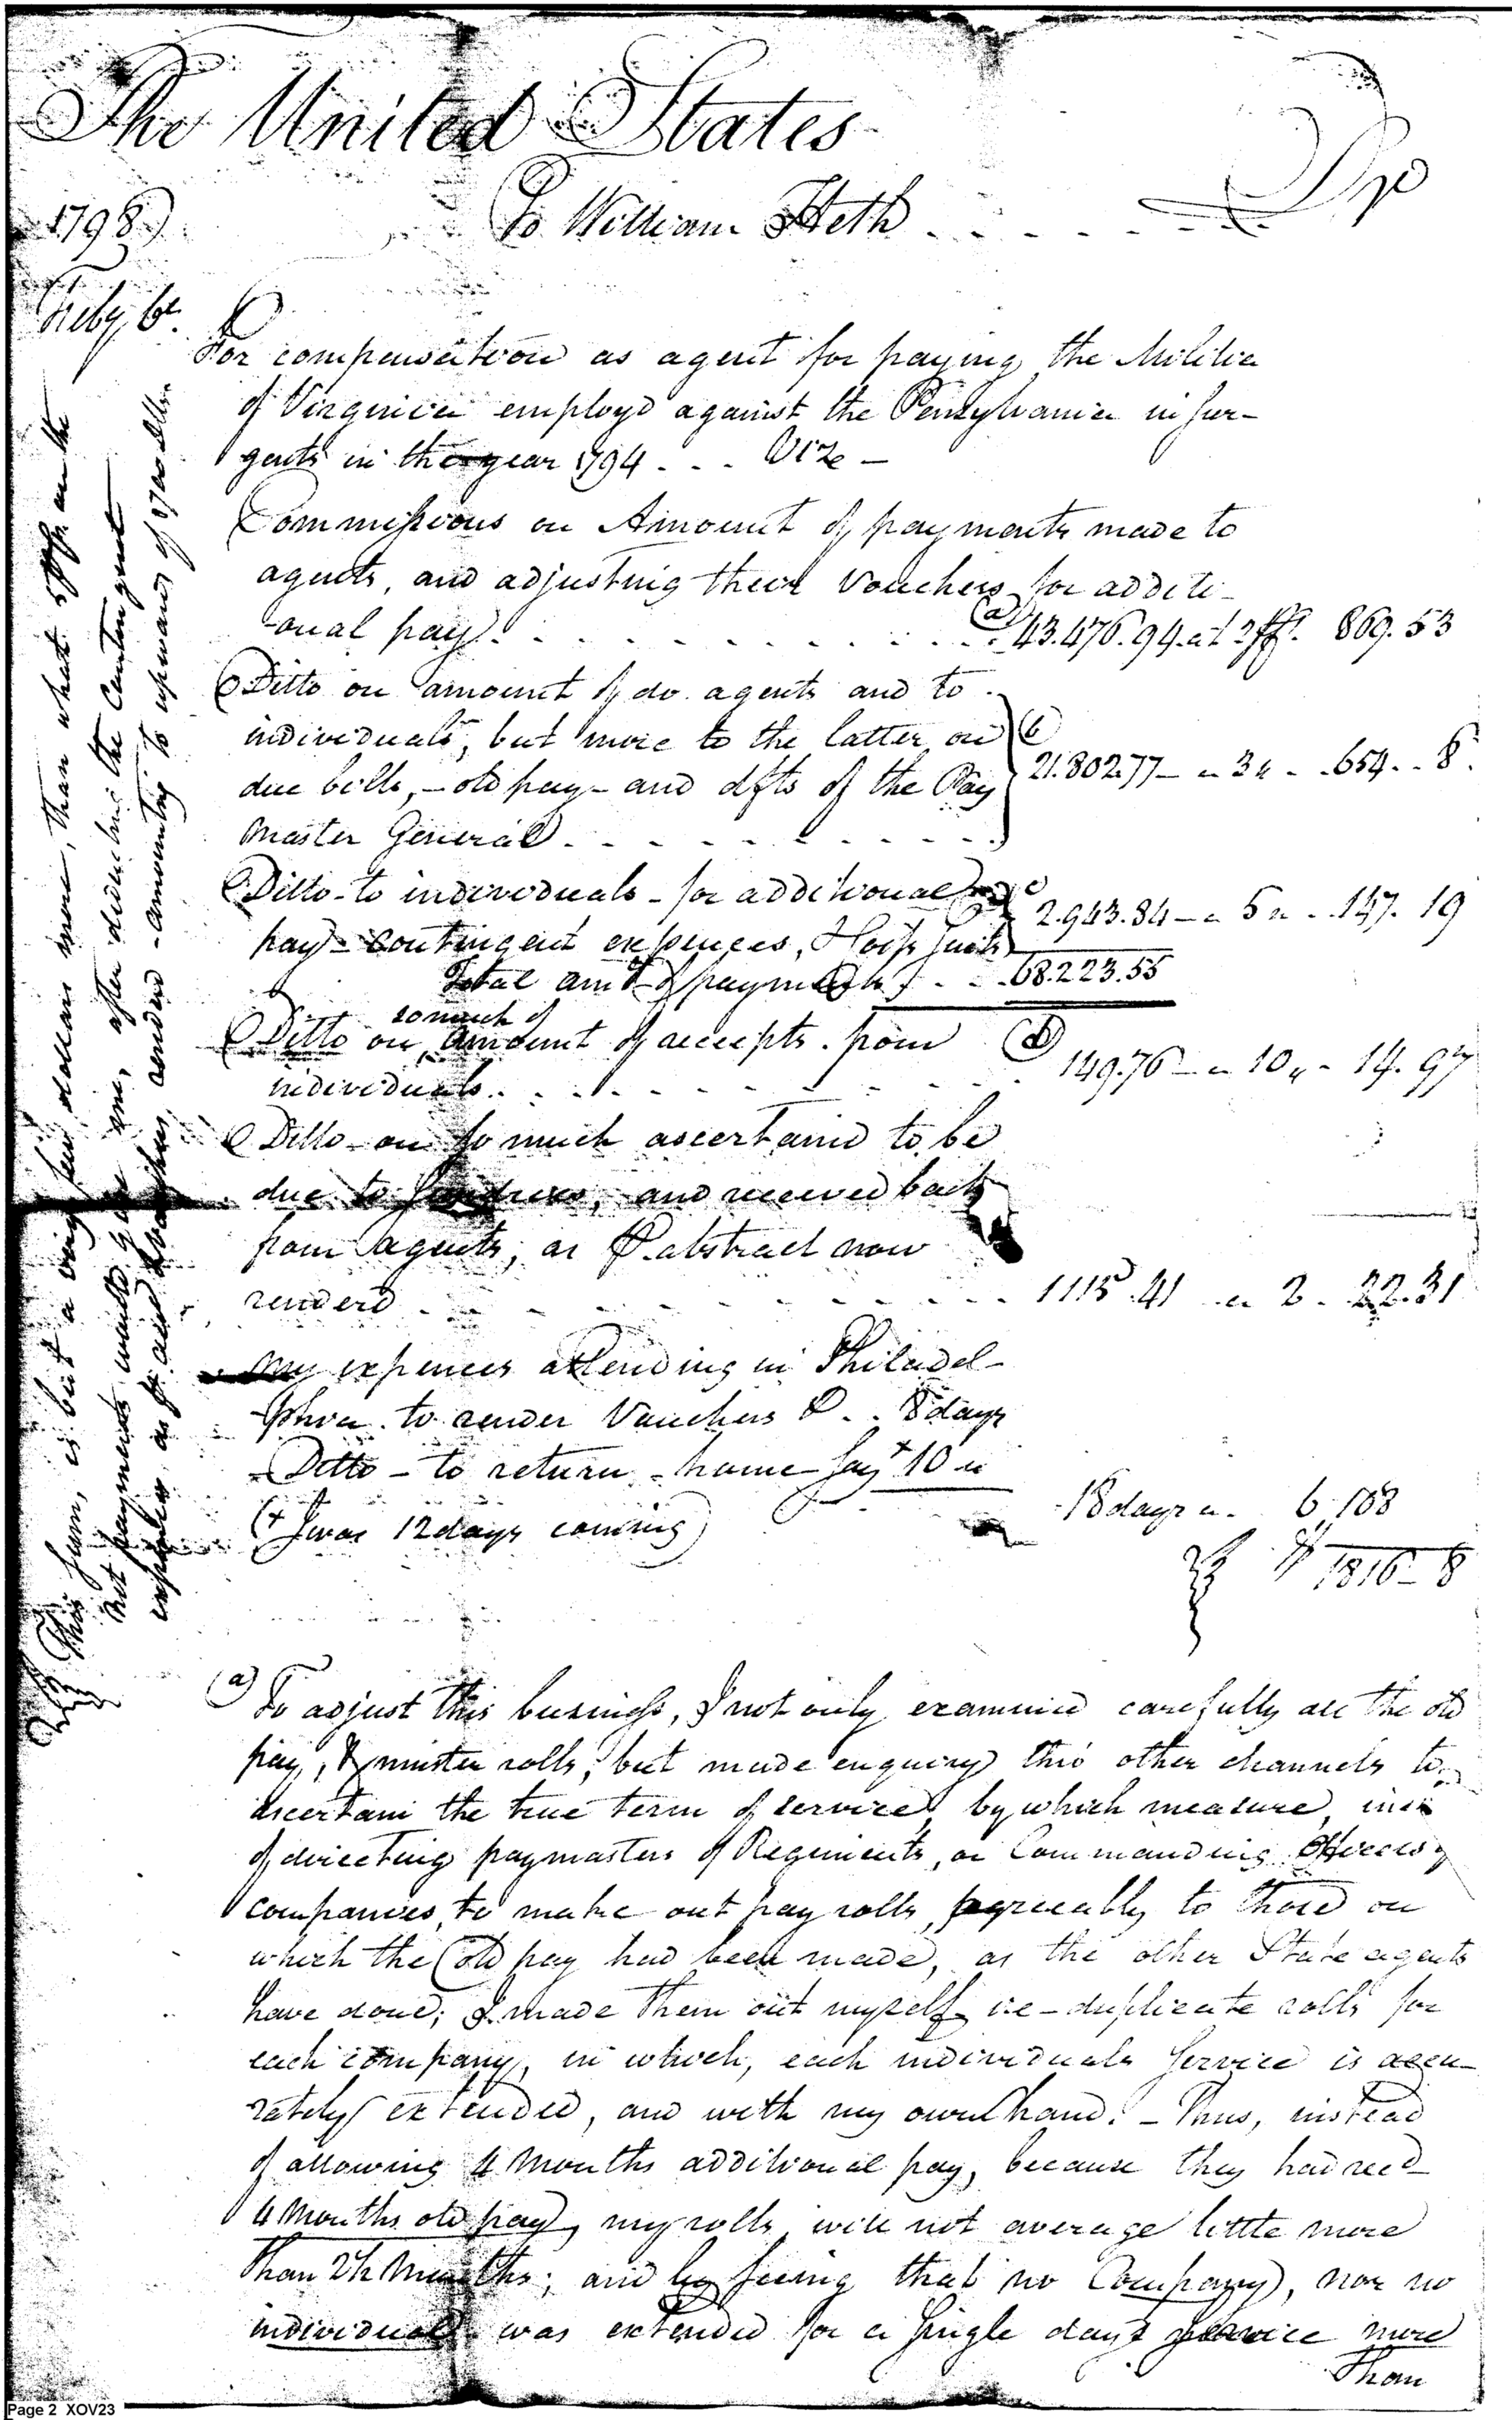 The United States
Dr
1798
To William Heth
Feby 6th
For compensation as agent for paying the Militia
of Virginia employd against the Pensylvania insur-
gents in the year 1794 . . . Vize —
Commissions on Amount of payments made to
agents, and adjusting their Vouchers for additi-
onal pay . . . (a) 43.476.94 at 2 pCt. 869.53
Ditto on amount of do. agents and to
individuals, but more to the latter on (b)
due bills, – old pay – and dfts of the Pay 21.802.77 – a 3 " – 654 . . 8.
Master General . . .
Ditto – to individuals – for additional (c)
pay – contingent expences, Hosp 2.943.84 – a 5 " – 147.19
Total amt of payments . . . 68.223.55
so much of
Ditto on amount of receipts from (d)
individuals . . . 149.76 – a 10 " – 14.97
Ditto – on so much ascertaind to be
due to sundries, and received back
from agents, as P. abstract now
renderd . . . 1115.41 a 2 – 22.31
My expences attending in Philadel-
phia to render Vouchers & . . 8 days
Ditto – to return – home – say + 10 "
(+ I was 12 days coming) 18 days a 6. 108
$ 1816 – 8
This sum, is but a very few dollars more, than what 5 pCt on the
net payments made by me, after deducting the Contingent
expences as p and Vouchers renderd – amounting to upwards of dollrs.
(a) To adjust this business, I not only examined carefully all the old
pay, & muster rolls, but made enquiry thro other channels to
ascertain the true term of service, by which measure,
of directing paymasters of Regiments, or Commanding Officers of
companies, to make out pay rolls, agreeably to those on
which the old pay had been made, as the other State agents
have done; I made them out myself in duplicate rolls for
each company, in which, each individuals Service is accu-
rately extended, and with my own hand. – Thus, instead
of allowing 4 Months additional pay, because they had recd
4 Months old pay, my rolls will not average little more
than 2½ Months; and by seeing that no Company, nor no
individual was extended for a single days service more
Than
Page 2 XOV23